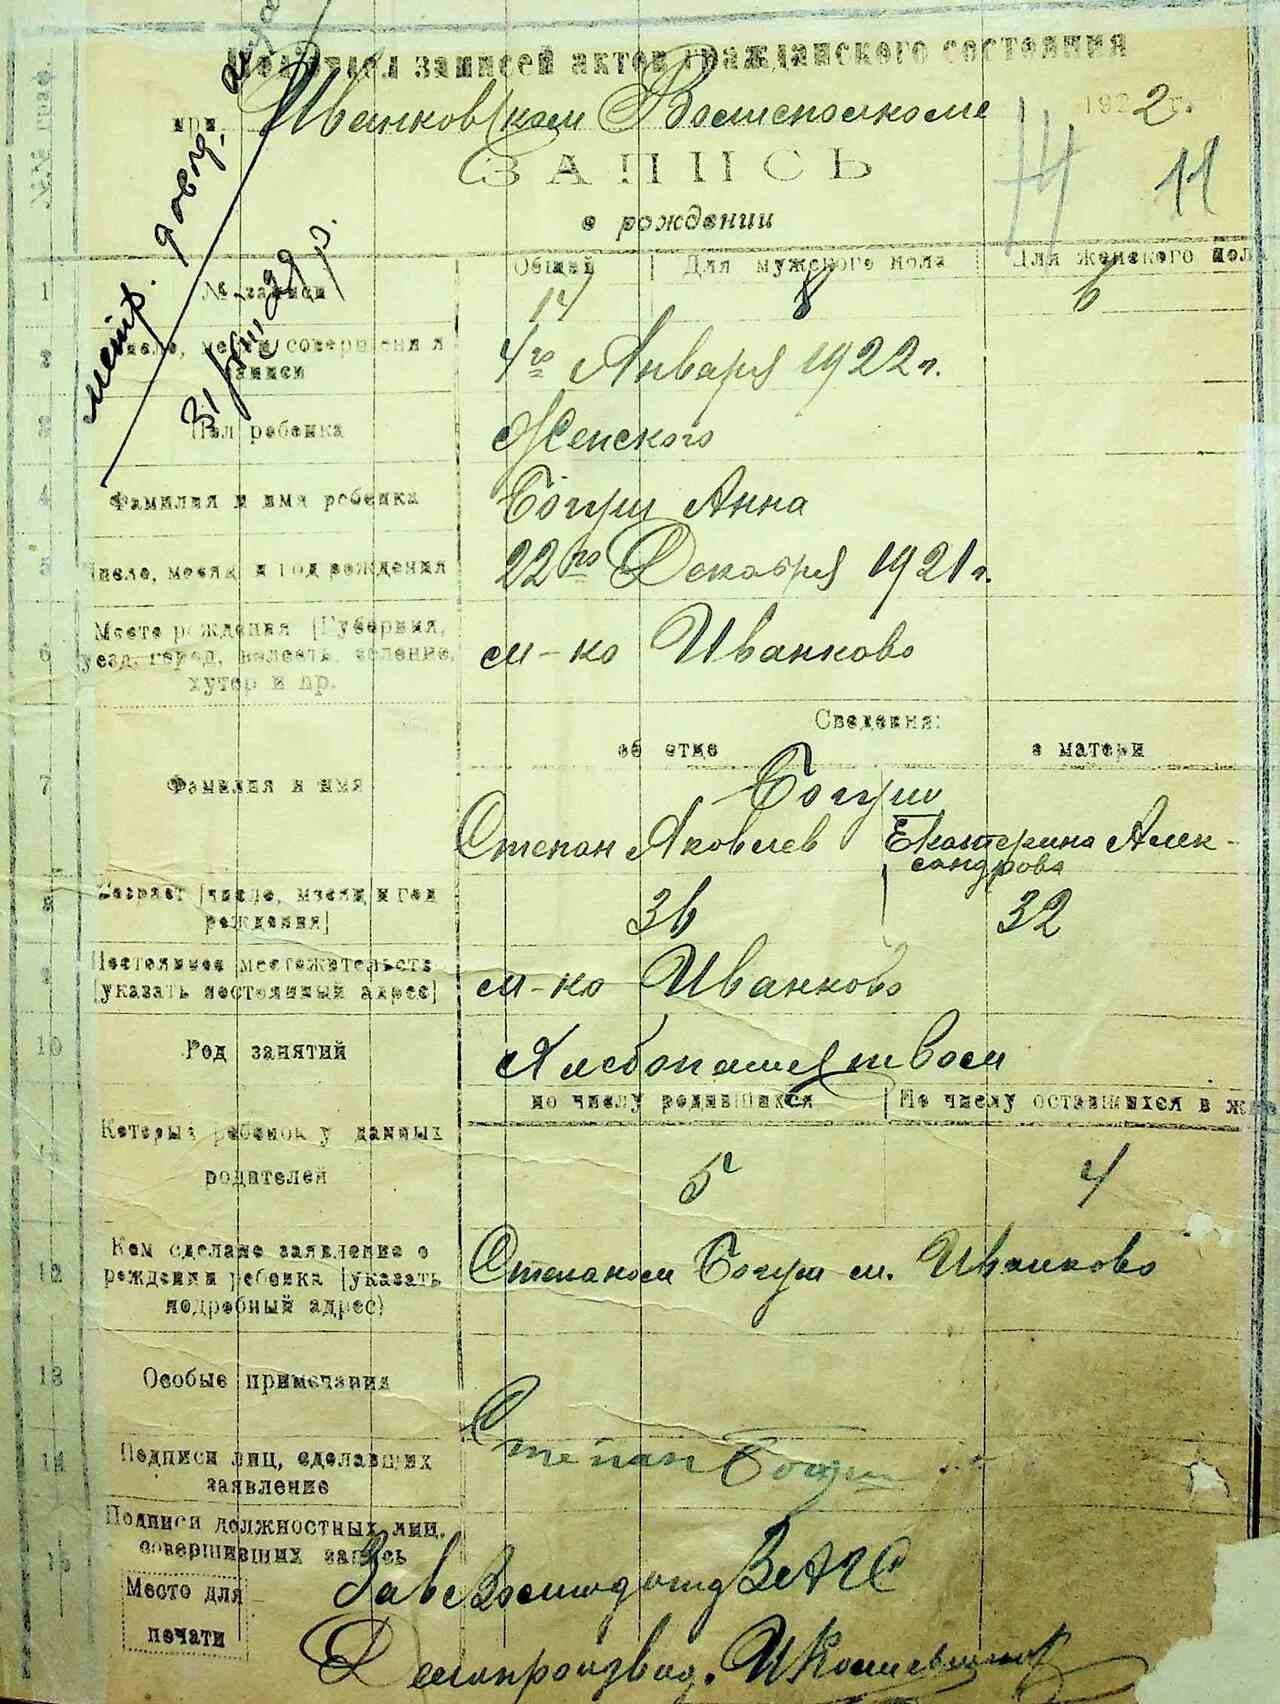 Подотдел записей актов гражданского состояния
при Иванковском Волисполкоме 1922г.
ЗАПИСЬ
о рождении
11
метр.
31/VIII 29 р.
Общий Для мужского пола Для женского пола
1 № записи 14 8 6
2 Число, месяц совершения записи 4го Января 1922г.
3 Пол ребенка Женского
4 Фамилия и имя ребенка Богуш Анна
5 Число, месяц и год рождения 22го Декабря 1921г.
6 Место рождения (Губерния,
уезд, город, волость, селение,
хутор и пр. м-ко Иванково
Сведения:
об отце о матери
7 Фамилия и имя Богуш
Степан Яковлев Екатерина Алек-
сандрова
8 Возраст (число, месяц и год
рождения) 36 32
9 Постоянное местожительств
(указать постоянный адрес) м-ко Иванково
10 Род занятий Хлебопашеством
по числу родившихся По числу оставшихся в жив
Который ребенок у данных
родителей 5 4
12 Кем сделано заявление о
рождении ребенка (указать
подробный адрес) Степаном Богуш м. Иванково
13 Особые примечания
14 Подписи лиц, сделавших
заявление Степан Богуш
15 Подписи должностных лиц,
совершивших запись
Место для
печати
Делопроизвод.